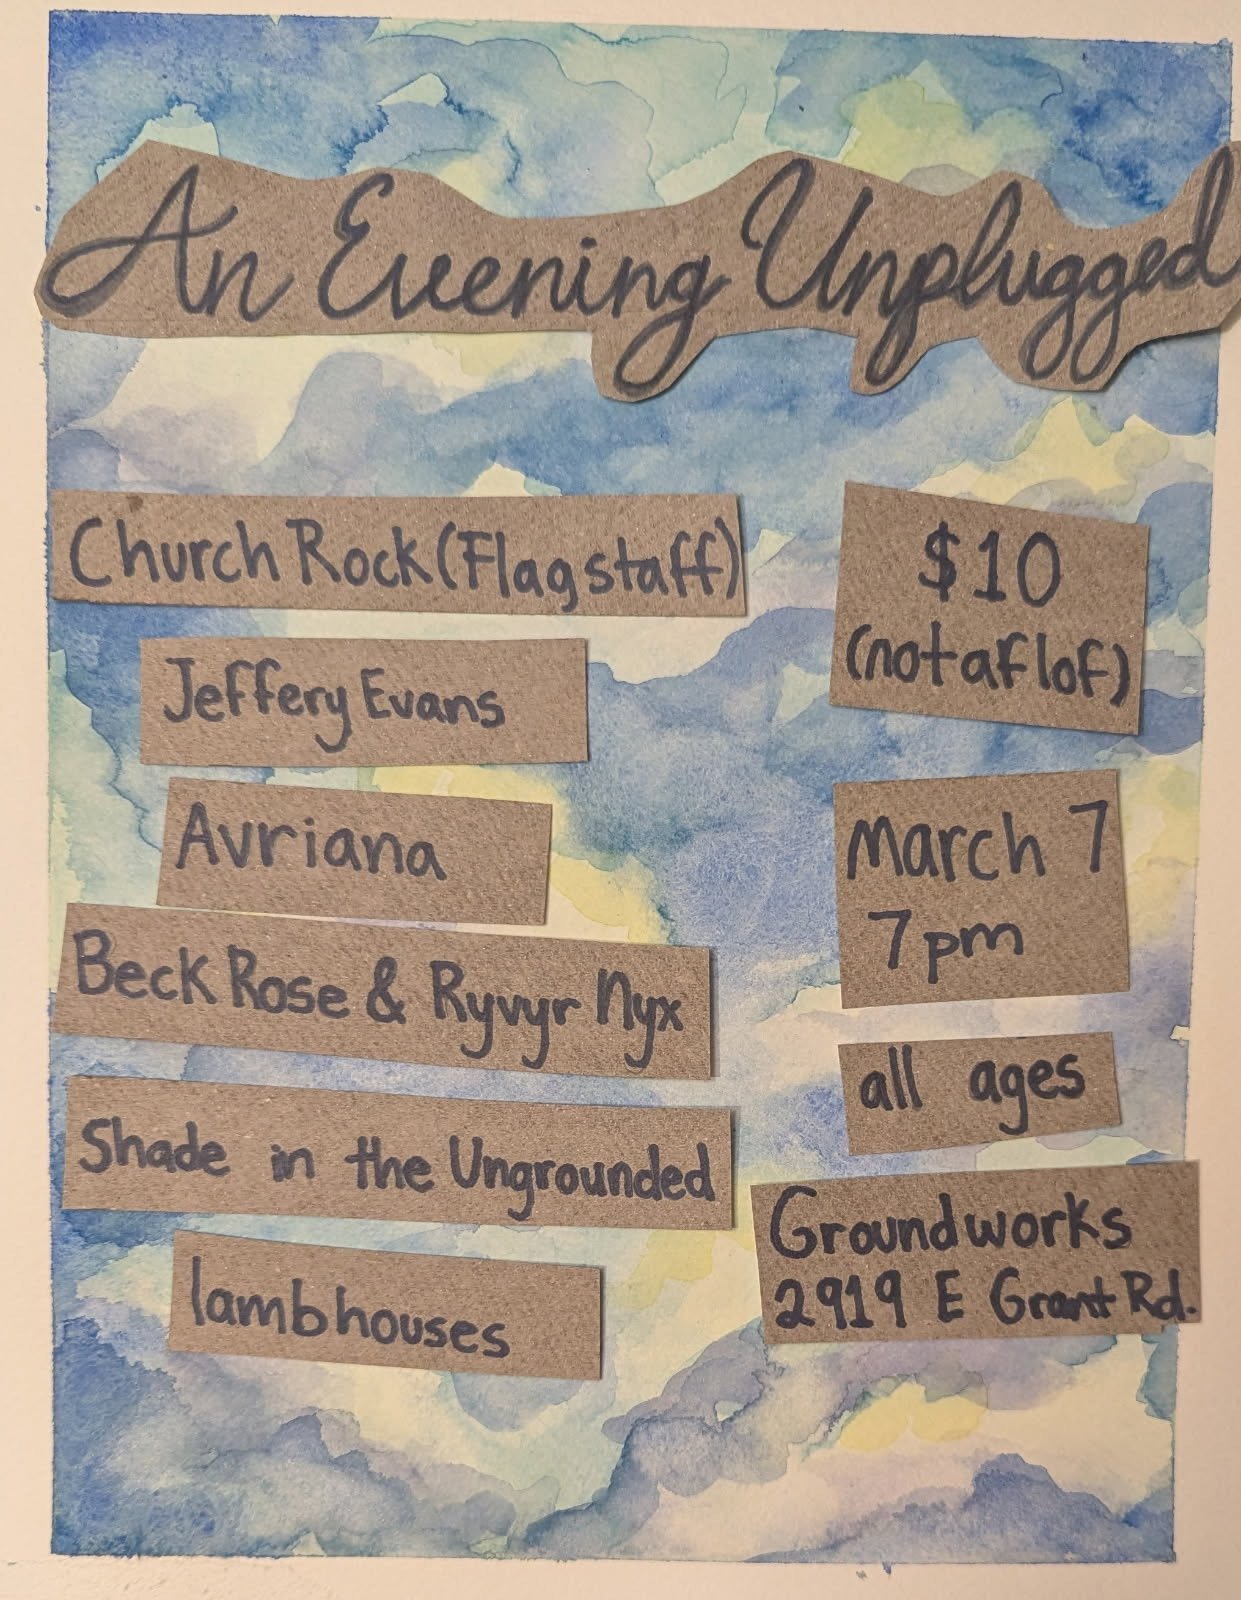 An Evening Unplugged
Church Rock (Flagstaff)
Jeffery Evans
Avriana
Beck Rose & Ryvyr Nyx
Shade in the Ungrounded
lambhouses
$10
(notaflof)
March 7
7pm
all ages
Groundworks
2919 E Grant Rd.